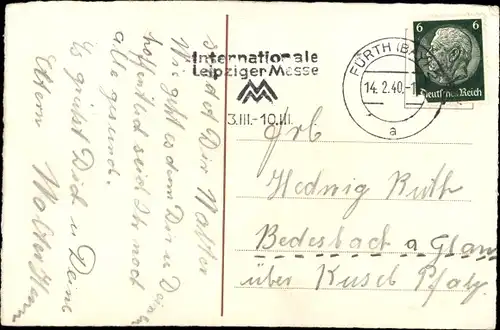 sendet Dir Walter
Wie geht es denn Dir u
hoffentlich seid Ihr noch
alle gesund.
Es grüsst Dich u Deine
Eltern Walter
Internationale
Leipziger Messe
3.III.-10.III.
FÜRTH (BAY)
14.2.40.-1
a
6 6
Deutsches Reich
Frl
Hedwig Ruth
Bedesbach a Glan
über Kusel Pfalz.